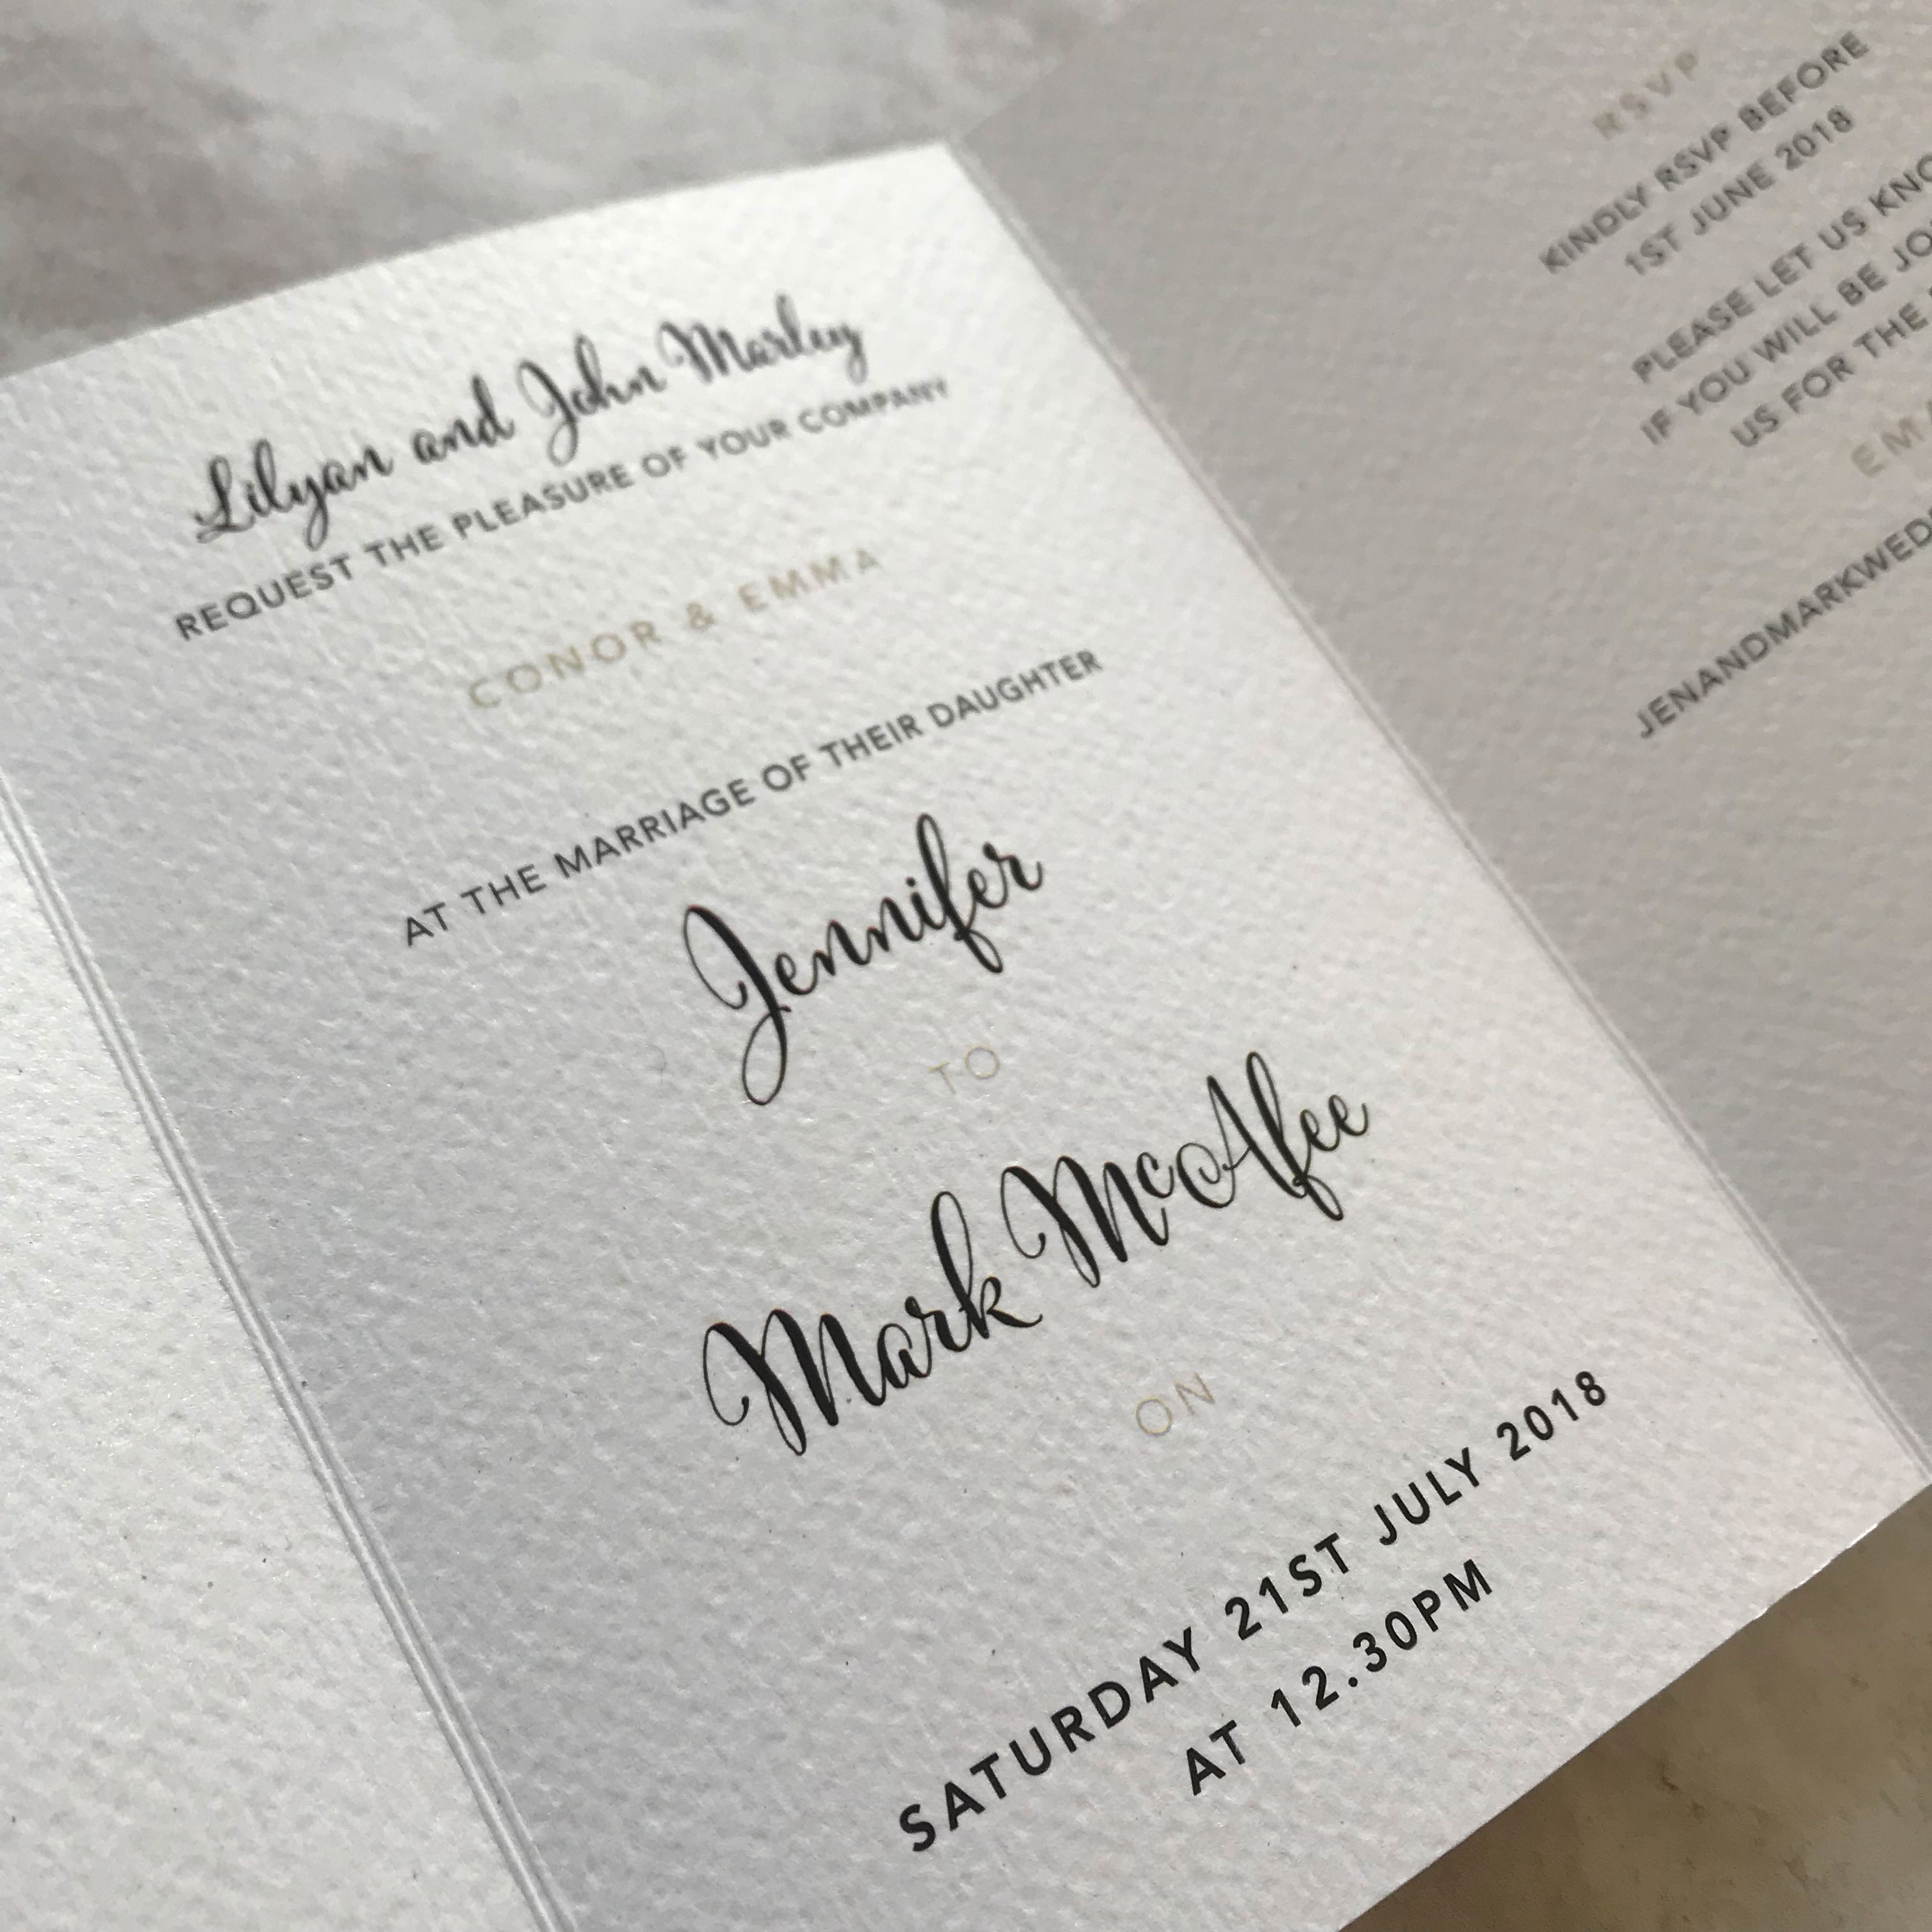 Lilyan and John Marley
REQUEST THE PLEASURE OF YOUR COMPANY
CONOR & EMMA
AT THE MARRIAGE OF THEIR DAUGHTER
Jennifer
TO
Mark McAfee
ON
SATURDAY 21ST JULY 2018
AT 12.30PM
RSVP
KINDLY RSVP BEFORE
1ST JUNE 2018
PLEASE LET US
IF YOU WILL BE
US FOR THE